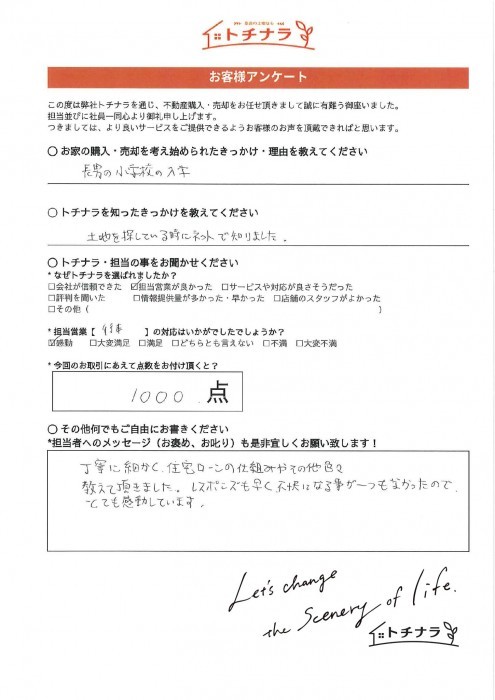 トチナラ
お客様アンケート
この度は弊社トチナラを通じ、不動産購入・売却をお任せ頂きまして誠に有難う御座いました。
担当並びに社員一同心より御礼申し上げます。
つきましては、より良いサービスをご提供できるようお客様のお声を頂戴できればと思います。
〇 お家の購入・売却を考え始められたきっかけ・理由を教えてください
長男の小学校の入学
〇 トチナラを知ったきっかけを教えてください
土地を探している時にネットで知りました。
〇 トチナラ・担当の事をお聞かせください
* なぜトチナラを選ばれましたか？
□会社が信頼できた ☑担当営業が良かった □サービスや対応が良さそうだった
□評判を聞いた □情報提供量が多かった・早かった □店舗のスタッフがよかった
□その他（
* 担当営業【 】の対応はいかがでしたでしょうか？
☑感動 □大変満足 □満足 □どちらとも言えない □不満 □大変不満
* 今回のお取引にあえて点数をお付け頂くと？
1000 点
〇 その他何でもご自由にお書きください
*担当者へのメッセージ（お褒め、お叱り）も是非宜しくお願い致します！
丁寧に細かく、住宅ローンの仕組みやその他色々
教えて頂きました。レスポンスも早く不快になる事が一つもなかったので、
とても感動しています。
Let's change
the Scenery of life.
トチナラ